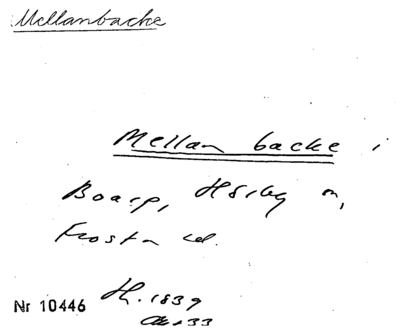 Mellanbacke
Mellan backe i
Boarp, Hörby sn,
Frosta hd.
Nr 10446 H. 1839
33